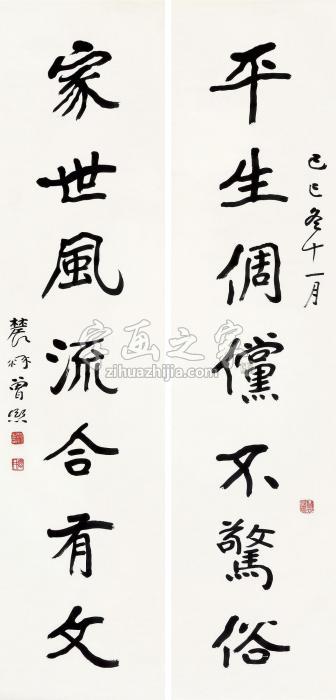 己巳冬十一月
平生倜儻不驚俗
家世風流合有文
農髯曾熙
字画之家
zihuazhijia.com